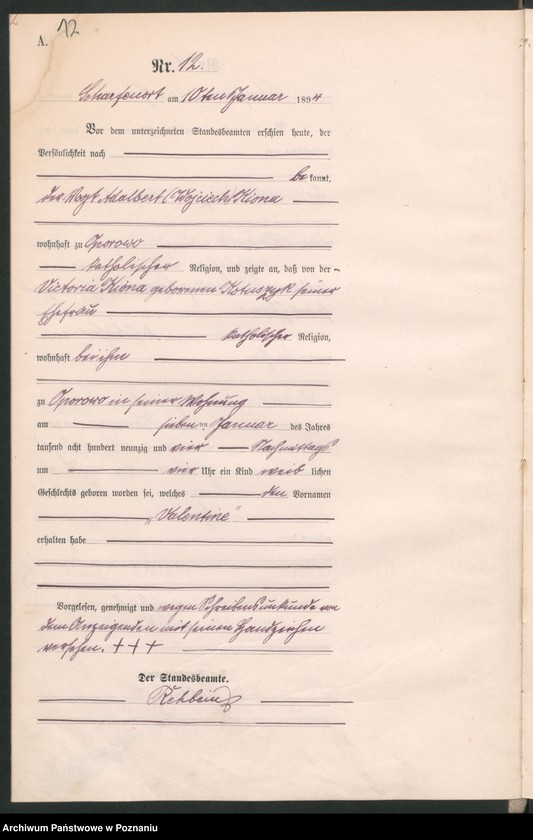 A.
12
Nr. 12.
Scharfenort am 10ten Januar 1894
Vor dem unterzeichneten Standesbeamten erschien heute, der
Persönlichkeit nach
be kannt,
der Vogt Adalbert (Wojciech) Kiona
wohnhaft zu Oporowo
katholischer Religion, und zeigte an, daß von der
Victoria Kiona geborenen Kotuszyk seiner
Ehefrau
katholischer Religion,
wohnhaft bei ihm
zu Oporowo in seiner Wohnung
am sieben ten Januar des Jahres
tausend acht hundert neunzig und vier Nachmittags
um vier Uhr ein Kind weib lichen
Geschlechts geboren worden sei, welches den Vornamen
„Valentine"
erhalten habe
Vorgelesen, genehmigt und wegen Schreibensunkunde von
dem Anzeigenden mit seinem Handzeichen
versehen. +++
Der Standesbeamte.
Rehbein
Archiwum Państwowe w Poznaniu